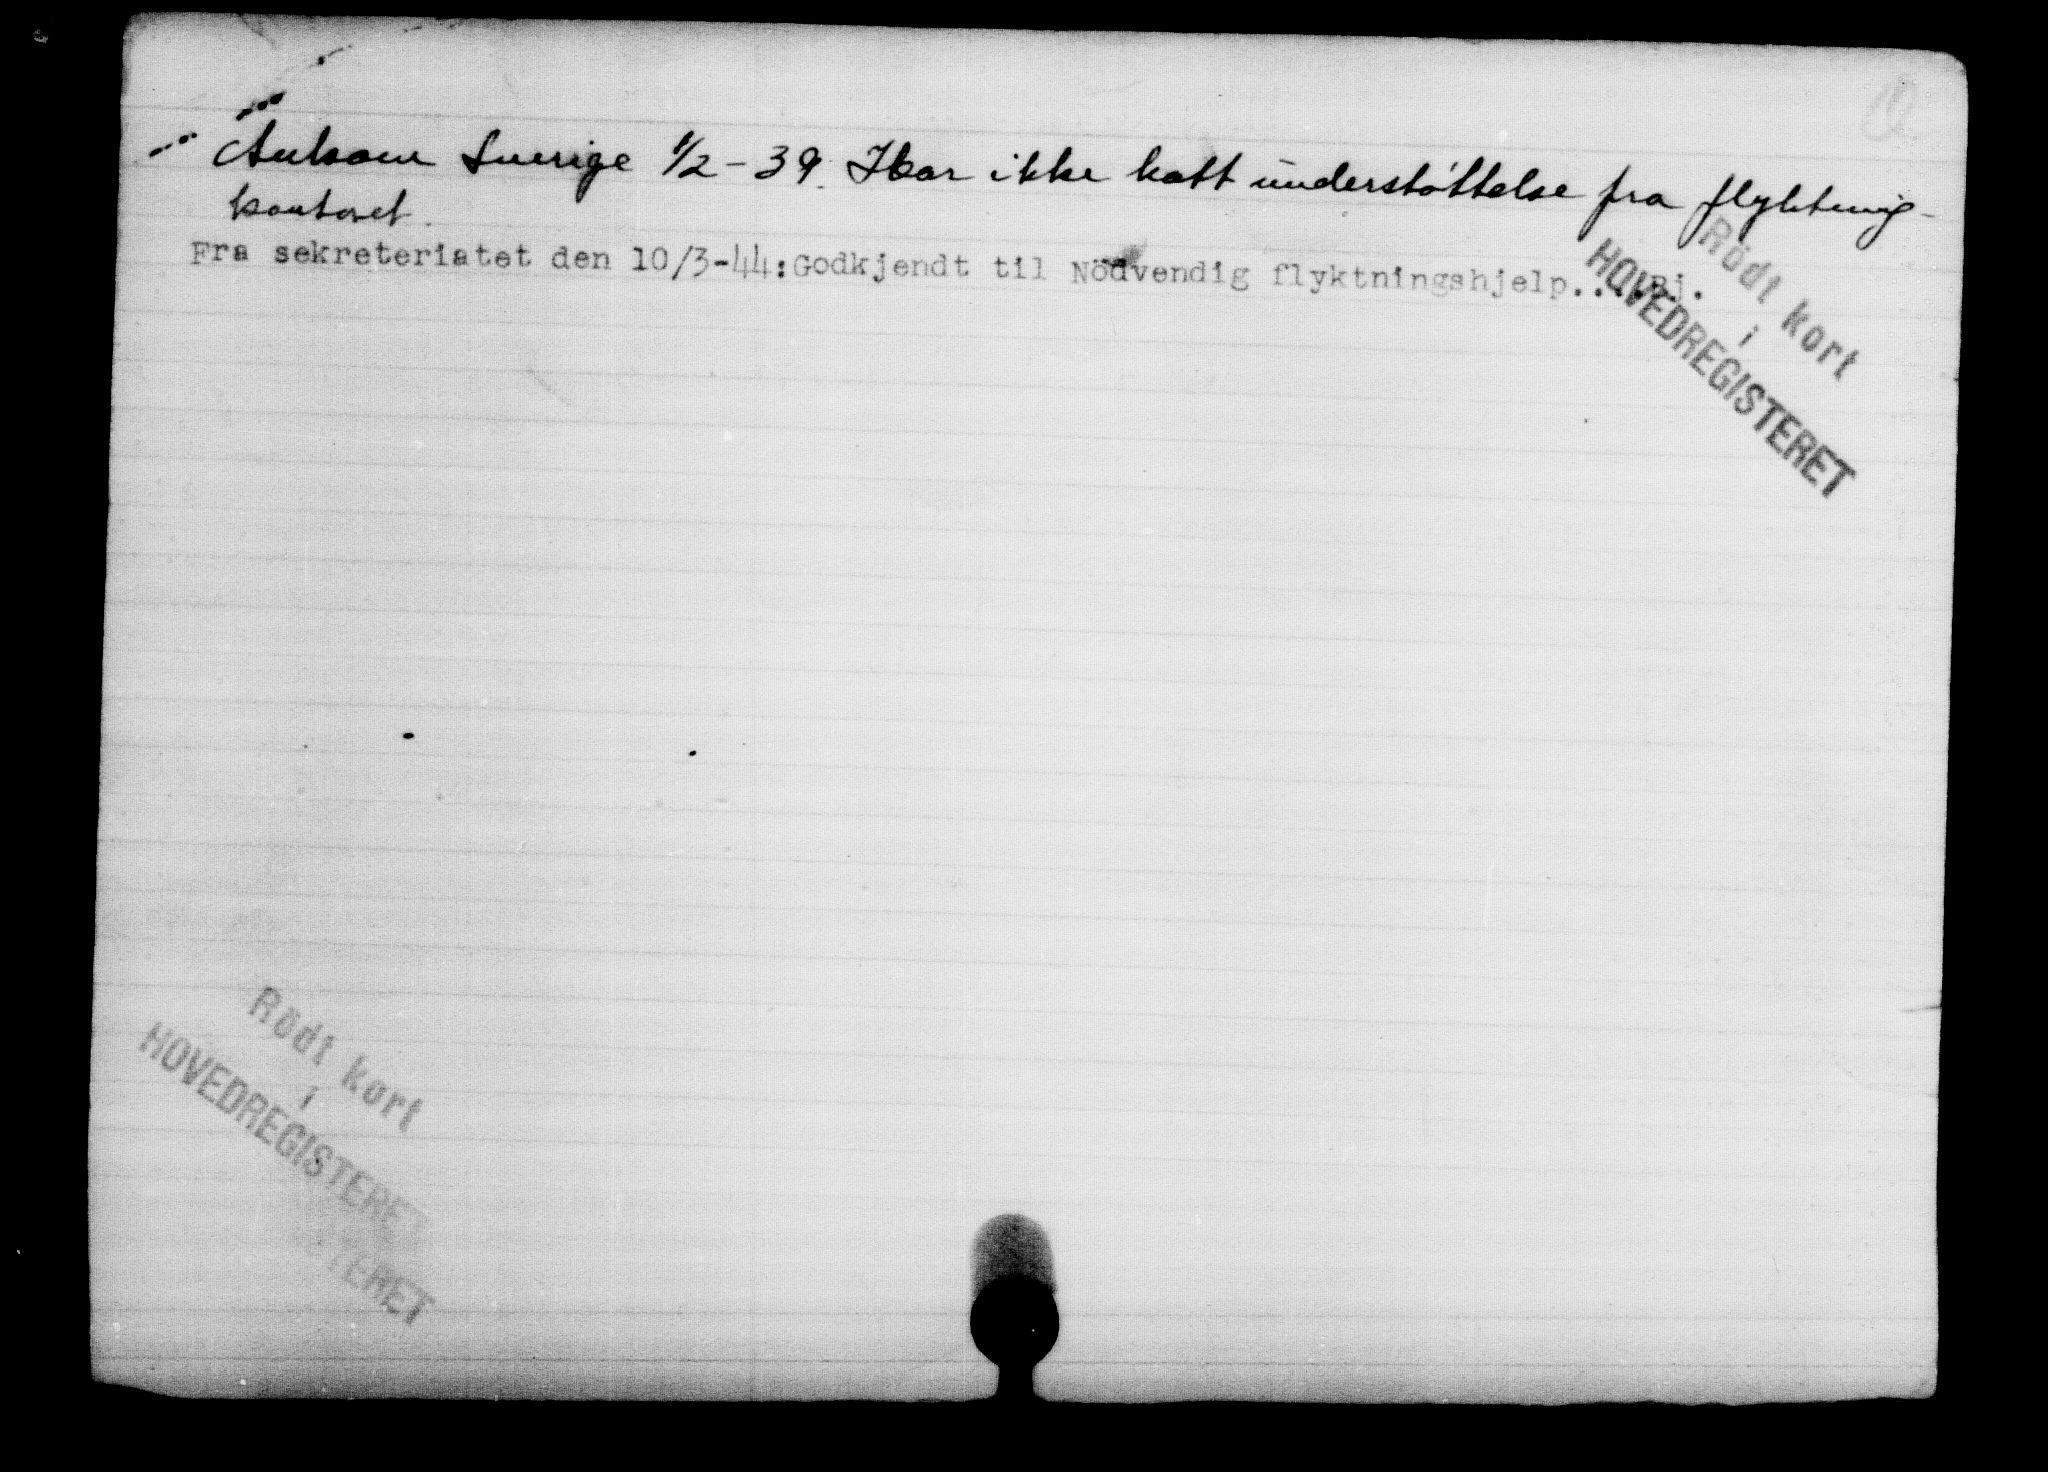 Ankom Sverige 1/2-39. Har ikke hatt understøttelse fra flyktning-
kontoret.
Fra sekreteriatet den 10/3-44:Godkjendt til Nödvendig flyktningshjelp....Bj.
Rödt kort
i
HOVEDREGISTERET
Rödt kort
i
HOVEDREGISTERET
TERET